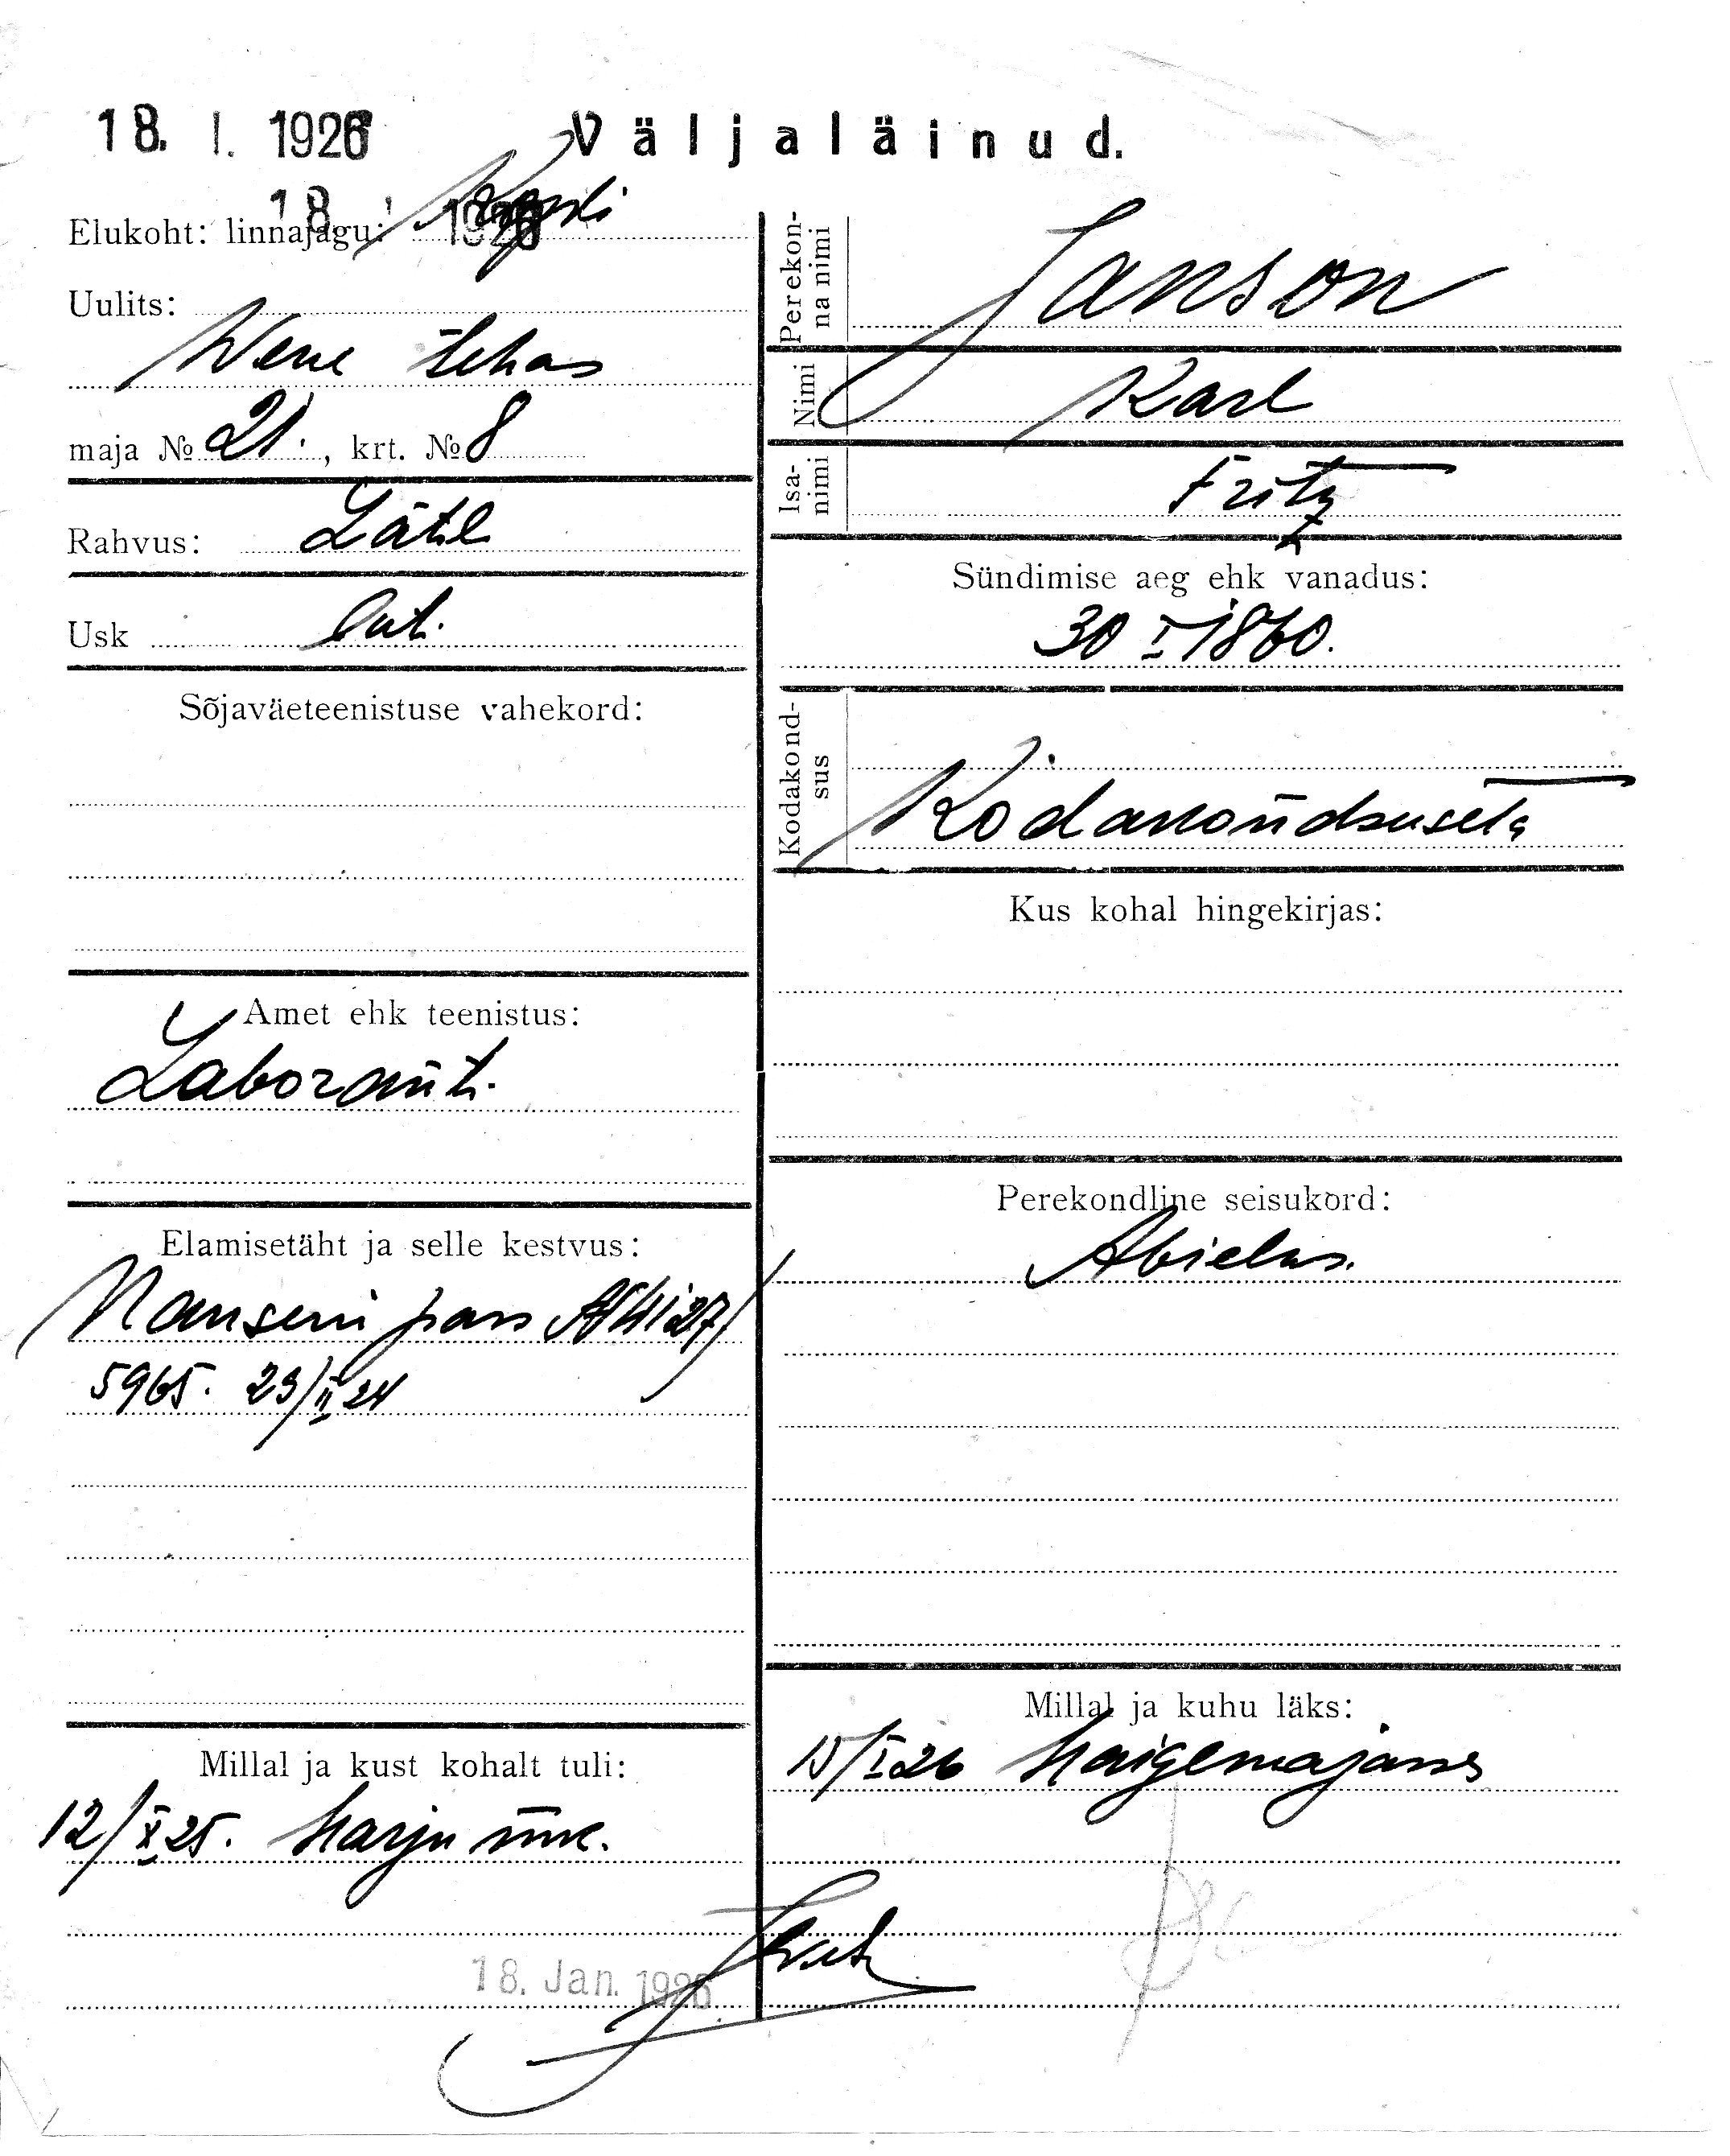 18. I. 1926
Väljaläinud.
18 I 1926
Elukoht: linnajagu:
Uulits:
Wene
maja № 21. , krt. № 8
Rahvus: Lätl
Usk Lut.
Sõjaväeteenistuse vahekord:
Amet ehk teenistus:
Laborant.
Elamisetäht ja selle kestvus:
Nanseni pass
5965. 23/II 24
Millal ja kust kohalt tuli:
12/X 25. Harju mk.
18. Jan. 1926
Perekon-
na nimi
Janson
Nimi Karl
Isa-
nimi
Fritz
Sündimise aeg ehk vanadus:
30 I 1860.
Kodakond-
sus
Kodakondsuseta
Kus kohal hingekirjas:
Perekondline seisukord:
Abielus.
Millal ja kuhu läks:
15/I 26 Haigemajasse